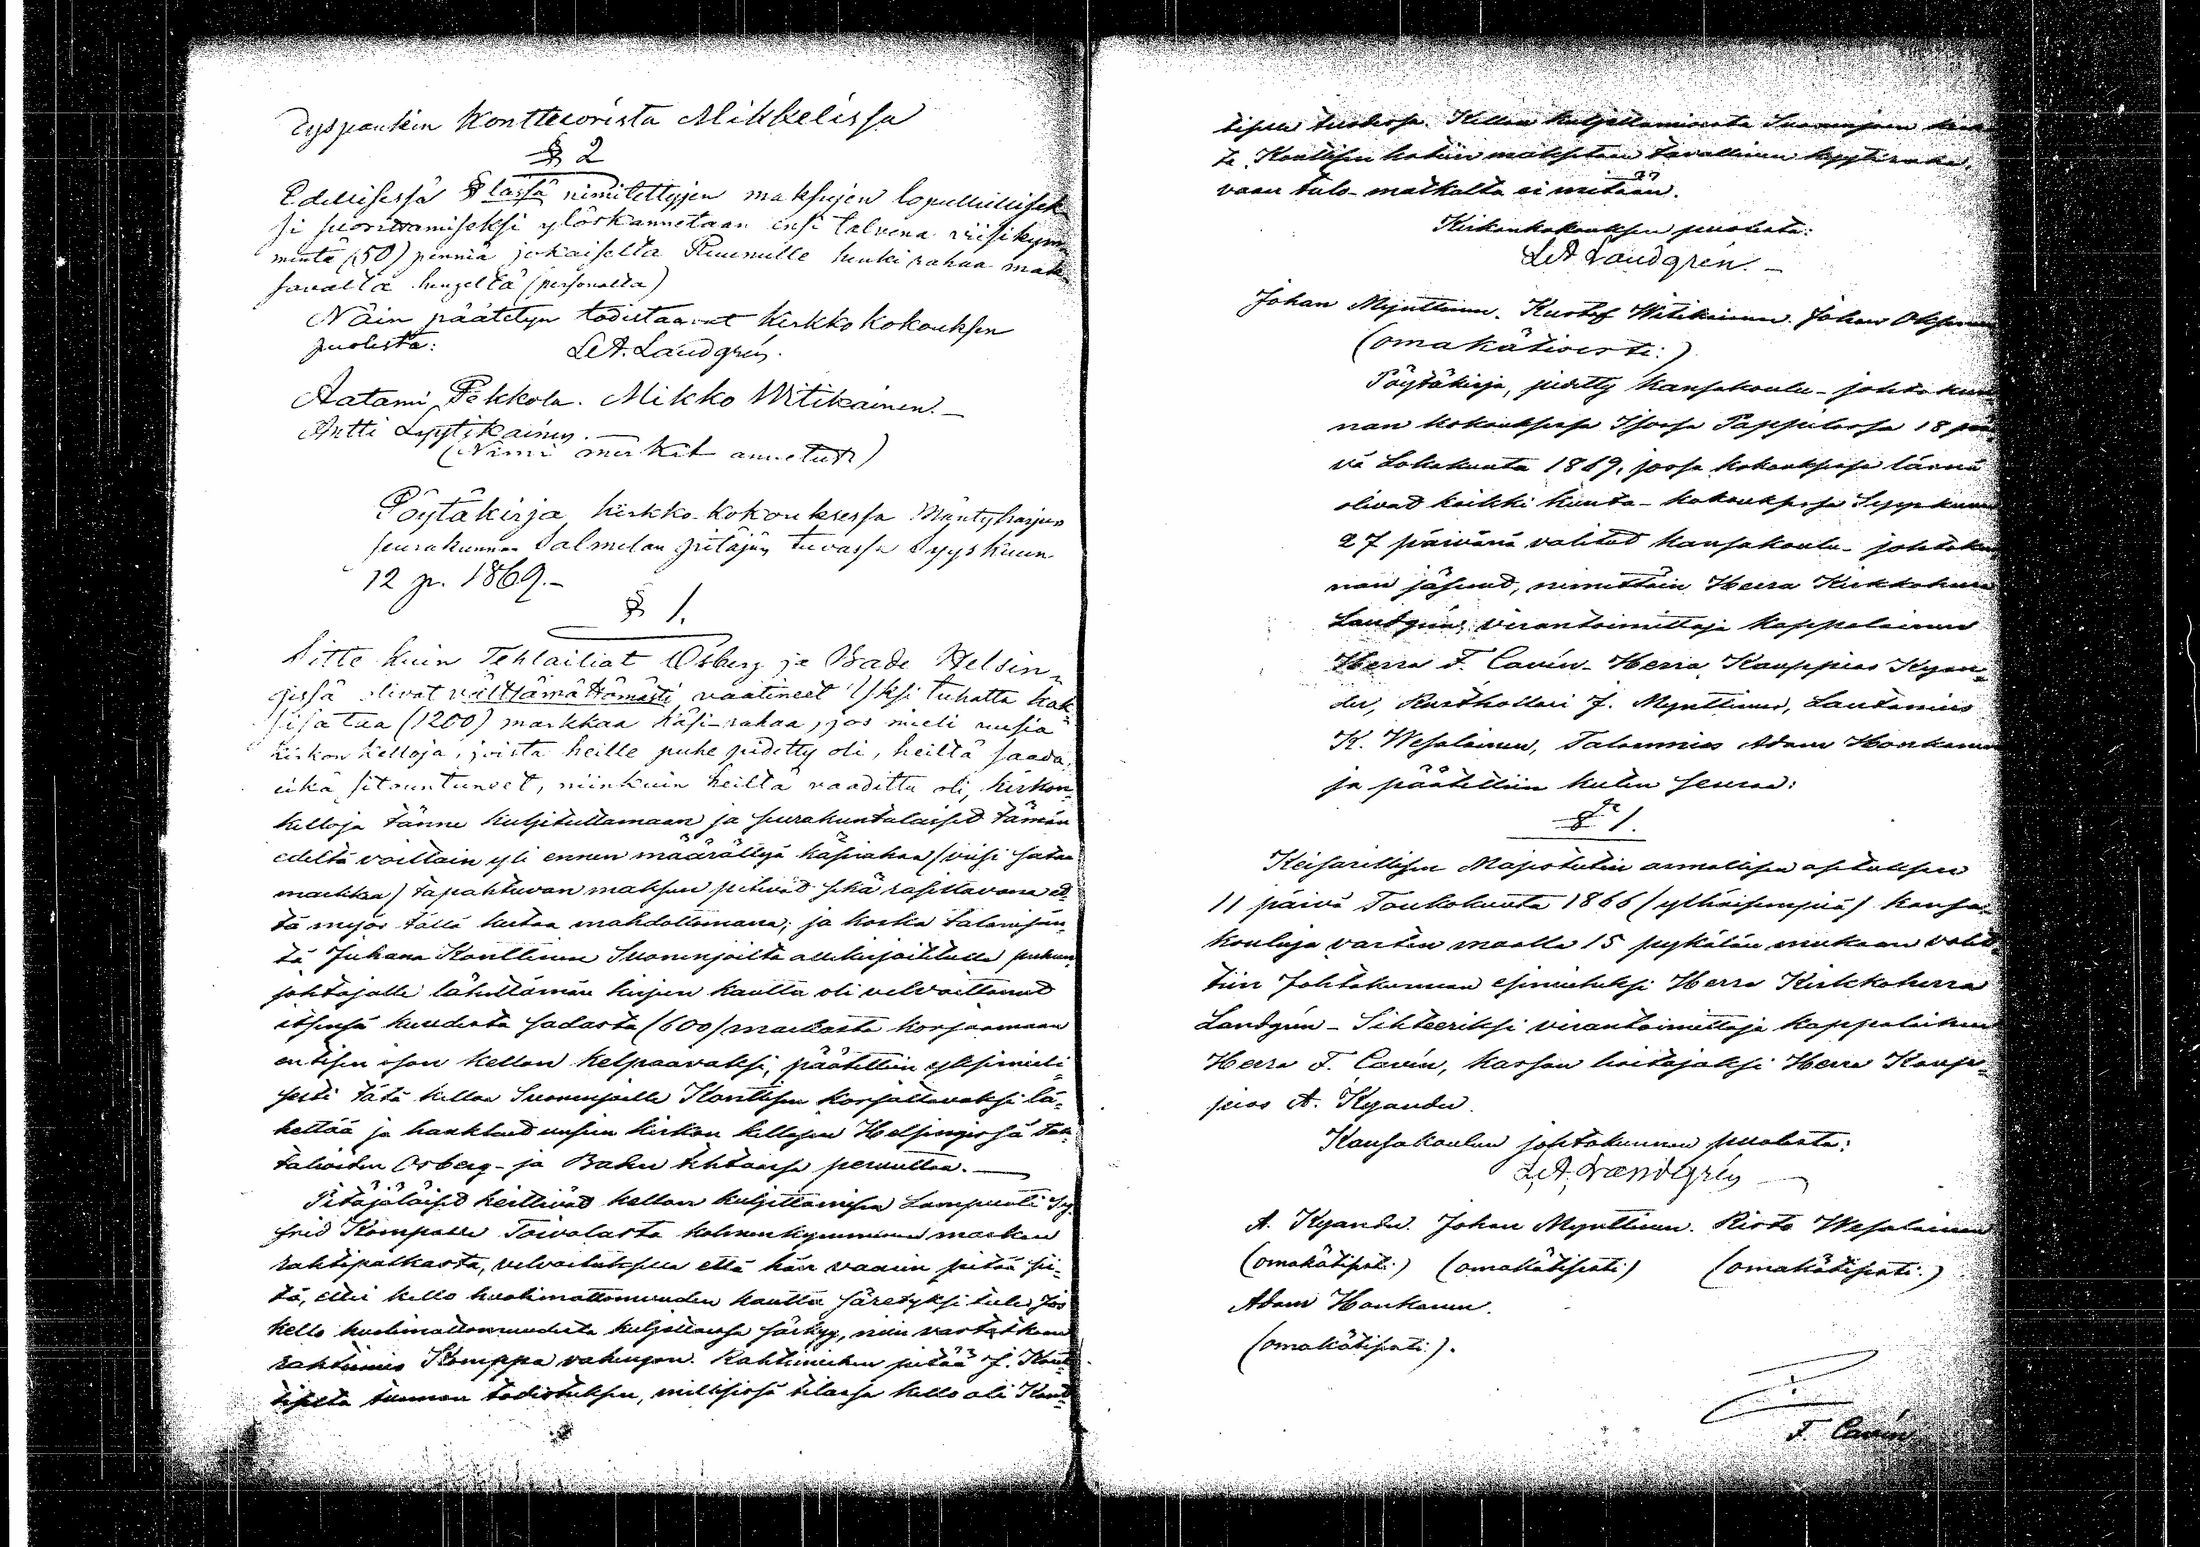 dyspankin Konttuorista Mikkelissa
§ 2
Edellisessä § lässä nimitettyjen maksujen lopullisek
si suorittamiseksi ylöskannetaan ensi talvena viisikym-
mentä (50) penniä jokaiselta Ruunulle henki rahaa mak-
savalta hengeltä (personalta)
Näin päätetyn todistaavat Kirkko kokouksen
puolesta: L.A. Landgrén.
Aatami Pekkola. Mikko Witikainen.
Antti Lyytikäinen.
(Nimi merkit annetut)
Pöytäkirja, kirkko-kokouksessa Mäntyharjun
seurakunnan Salmelan pitäjän tuvassa Syyskuun
12 p. 1869.-
§ 1.
Sitte kuin Tehtailiat Osberg ja Bade Helsin-
gissä olivat välttämättömästi vaatineet Yksi tuhatta kak-
sisataa (1200) markkaa käsi-rahaa, jos mieli uusia
kirkon kelloja, joista heille puhe pidetty oli, heiltä saada,
eikä sitountuneet, niinkuin heiltä vaadittu oli, kirkon-
kelloja tänne kuljetuttamaan ja seurakuntalaiset tämän
edeltä voittain yli ennen määrättyä käsirahaa (viisi sataa
markkaa) tapahtuvan maksun pitivät sekä rasittavana et-
tä myös tällä kertaa mahdottomana; ja koska talonisän-
tä Juhana Konttinen Suonenjoilta allekirjoitetulle puhen
johtajalle lähettämän kirjan kautta oli velvoittanut
itsensä kuudesta sadasta (600) markasta korjaamaan
entisen ison kellon kelpaavaksi, päätettiin yksimieli-
sesti tätä kelloa Suonenjoelle Konttisen korjattavaksi lä-
hettää ja hankkeet uusien kirkon kellojen Helsingissä teh-
talioiden Osberg- ja Baden tehtaassa peruuttaa.
Pitäjäläiset heittivät kellon kuljettamisen Lampuoti Sig
frid Kompalle Toivolasta kolmenkymmenen markan
rahtipalkasta, velvoituksella että hän vaarin pitää sii-
tä, ettei kello huolimattomuuden kautta säretyksi tule. Jos
kello huolimattomuudesta kuljettaissa särkyy, niin vastatkoon
rahtimies Komppa vahingon. Rahtimiehen pitää J. Kont-
tiselta tuoman todistuksen, millisissä tilassa kello oli Kont-
tiselle tuodessa. Kellon kuljettamisesta Suonenjoen
Konttisen kotiin maksetaan tavallinen kyytiraha,
vaan tulo-matkalta ei mitään.
Kirkonkokouksen puolesta:
L.A. Landgrén.
Johan Mynttinen. Kustaf Witikainen. Johan
(omakätisesti:)
Pöytäkirja, pidetty kansakoulu-johtokun
nan kokouksessa Isossa Pappilassa 18 päi
vä Lokakuuta 1869, jossa kokouksessa läsnä
olivat kaikki kunta-kokouksessa Syyskuun
27 päivänä valitut kansakoulu-johtokun
nan jäsenet, nimittäin Herra Kirkkoherra
Landgrén, virantoimittaja kappalainen
Herra F. Cavén. Herra Kauppias Kyan-
der, Rusthollari J. Mynttinen, Lautamies
K. Wesalainen, Talonmies Adam Honkanen
ja päätettiin kuten seuraa:
§ 1.
Keisarillisen Majestetin armollisen asetuksen
11 päivä Toukokuuta 1866 (ylhäisempiä) kansa-
kouluja varten maalla 15 pykälän mukaan valit-
tiin Johtokunnan esimieheksi Herra Kirkkoherra
Landgrén - Sihteeriksi virantoimittaja kappalainen
Herra F. Cavén, kassan hoitajaksi Herra Kaup-
pias A. Kyander.
Kansakoulun johtokunnan puolesta:
L.A. Landgrén
A. Kyander. Johan Mynttinen. Risto Wesalainen
(omakätisesti:) (omakätisesti) (omakätisesti:)
Adam Honkanen.
(omakätisesti:).
F. Cavén